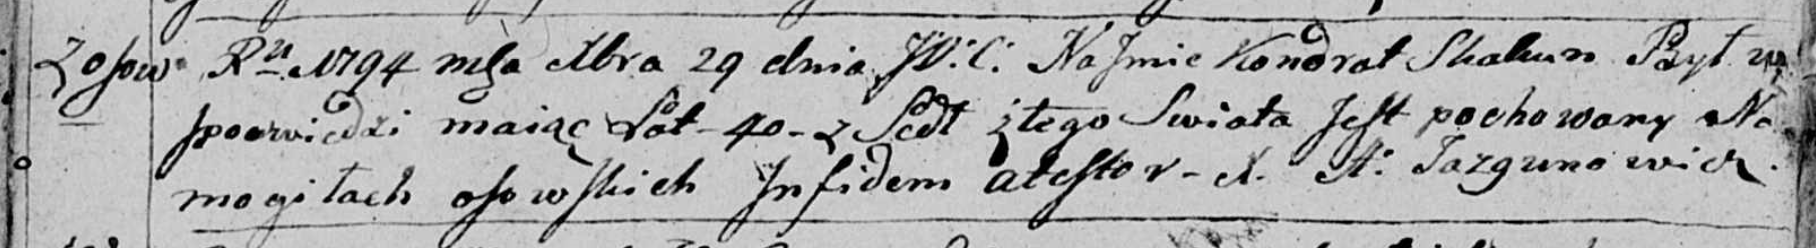 z osow Rᵘ 1794 msca Xbra 29 dnia W: C: Na Jmie Kondrat Skakun Był w
spowiedzi maiąc Lat - 40 - z Szedł z tego Swiata Jest pochowany Na
mogiłach osowskich In fidem atestor - X. A: Jazgunowicz.